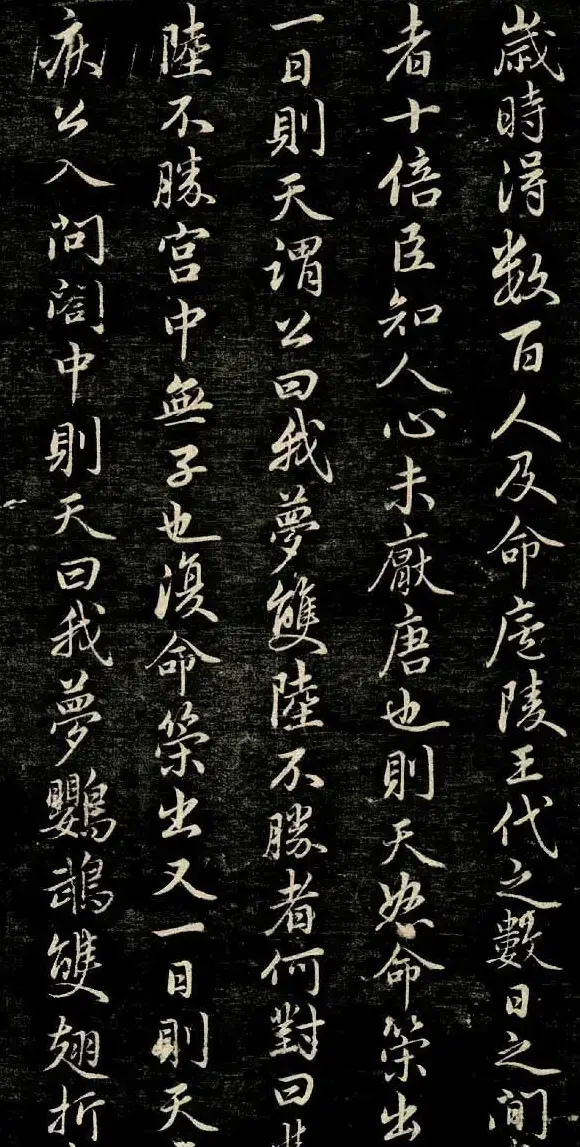 歲時得数百人及命廬陵王代之數日之間
者十倍臣知人心未厭唐也則天怒命策出
一日則天謂公曰我夢雙陸不勝者何對曰
陸不勝宮中無子也復命策出又一日則天
疾公入問閤中則天曰我夢鸚鵡雙翅折